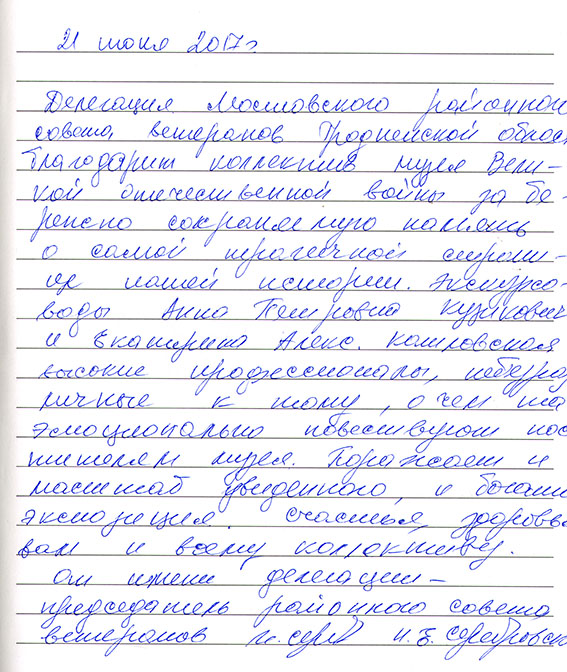 21 июня 2017г.
Делегация Мостовского районного
совета ветеранов Гродненской облас
благодарит коллектив музея Вели-
кой отечественной войны за бе-
режно сохраняемую память
о самой трагичной страни-
це нашей истории. Экскурсо-
воды Анна Петровна Кузикович
и Екатерина Алекс. Копировская
высокие профессионалы, небезраз
личные к тому, о чем та
эмоционально повествуют пос
тителям музея. Поражает и
масштаб увиденного, и богат
экспозиция. Счастья, здоровь
вам и всему коллективу.
От имени делегации –
председатель районного совета
ветеранов И. Б. Серебровск